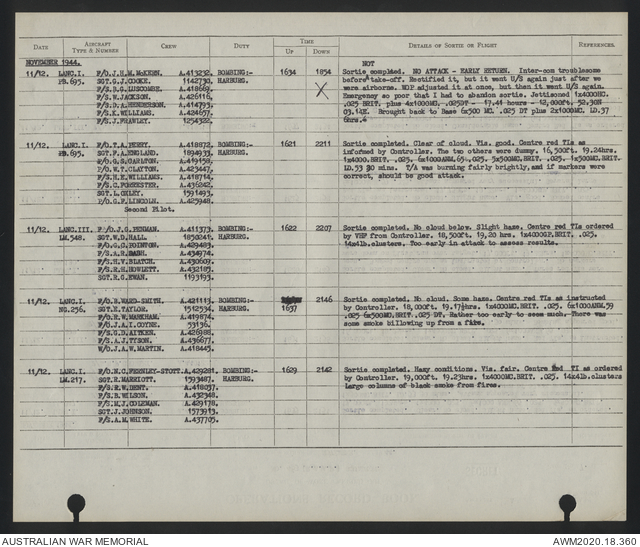 TIME
DATE AIRCRAFT TYPE & NUMBER CREW DUTY UP DOWN DETAILS OF SORTIE OR FLIGHT REFERENCES.
NOVEMBER 1944. NOT
11/12. LANC.I. F/O.J.H.M.McKERN. A.413232. BOMBING:- 1634 1854 Sortie completed. NO ATTACK - EARLY RETURN. Inter-com troublesome
PB.695. SGT.G.J.COOKE. 1142730. HARBURG. before take-off. Rectified it, but it went U/S again just after we
F/S.B.G.LUSCOMBE. A.418669. were airborne. WOP adjusted it at once, but then it went U/S again.
F/S.W.JACKSON. A.426116. Emergency so poor that I had to abandon sortie. Jettisoned 1x4000HC.
F/S.D.A.HENDERSON. A.414793. .025 BRIT. plus 4x1000MC. .025DT - 17.41 hours - 12,000ft. 52.30N
F/S.K.WILLIAMS. A.424657. 03.14E. Brought back to Base 6x500 MC. .025 DT plus 2x1000MC. LD.37
F/S.J.FRAWLEY. 1254322. 6hrs.
11/12. LANC.I. F/O.T.A.PERRY. A.418872. BOMBING:- 1621 2211 Sortie completed. Clear of cloud. Vis. good. Centre red TIs as
PB.695. SGT.F.A.ENGLAND. 1894933. HARBURG. informed by Controller. The two others were dummy. 16,500ft. 19.24hrs.
F/O.G.S.CARLTON. A.419158. 1x4000.BRIT. .025. 6x1000ANM.65. .025. 5x500MC.BRIT. .025. 1x500MC.BRIT.
F/O.W.T.CLAYTON. A.423447. LD.53 30 mins. T/A was burning fairly brightly, and if markers were
F/S.H.E.WILLIAMS. A.418714. correct, should be good attack.
F/S.C.FORRESTER. A.436242.
SGT.L.OXLEY. 1591493.
F/O.G.F.LINCOLN. A.425948.
Second Pilot.
11/12. LANC.III. P/O.J.G.PENMAN. A.411373. BOMBING:- 1622 2207 Sortie completed. No cloud below. Slight haze. Centre red TIs ordered
LM.548. SGT.W.D.HALL. 1850247. HARBURG. by VHF from Controller. 18,500ft. 19.20 hrs. 1x4000GP.BRIT. .025.
F/O.G.C.POINTON. A.429483. 14x4lb.clusters. Too early in attack to assess results.
F/S.A.R. A.434974.
F/S.H.V.BLATCH. A.430609.
F/S.R.H.HOWLETT. A.432183.
SGT.R.G.EWAN. 1193193.
11/12. LANC.I. F/O.B.WARD-SMITH. A.421113. BOMBING:- 2146 Sortie completed. No cloud. Some haze. Centre red TIs as instructed
NG.256. SGT.E.TAYLOR. 1512534. HARBURG. 1637 by Controller. 18,000ft. 19.17½hrs. 1x4000MC.BRIT. .025. 6x1000ANM.59
F/O.R.W.MARKHAM. A.419874. .025 6x500MC.BRIT. .025 DT. Rather too early to see much. There was
F/O.J.A.I.COYNE. 53136. some smoke billowing up from a fire.
F/S.G.D.AITKEN. A.428988.
F/S.A.J.TYSON. A.436677.
W/O.J.A.W.MARTIN. A.418445.
11/12. LANC.I. F/O.N.C.FERNLEY-STOTT. A.429281. BOMBING:- 1629 2142 Sortie completed. Hazy conditions. Vis. fair. Centre red TI as ordered
LM.217. SGT.R.MARRIOTT. 1593487. HARBURG. by Controller. 19,000ft. 19.23hrs. 1x4000MC.BRIT. .025. 14x4lb.clusters
F/S.R.W.DENT. A.418037. Large columns of black smoke from fires.
F/S.B.WILSON. A.432348.
F/S.M.J.COLEMAN. A.429178.
SGT.J.JOHNSON. 1573913.
F/S.A.M.WHITE. A.437705.
AUSTRALIAN WAR MEMORIAL AWM2020.18.360